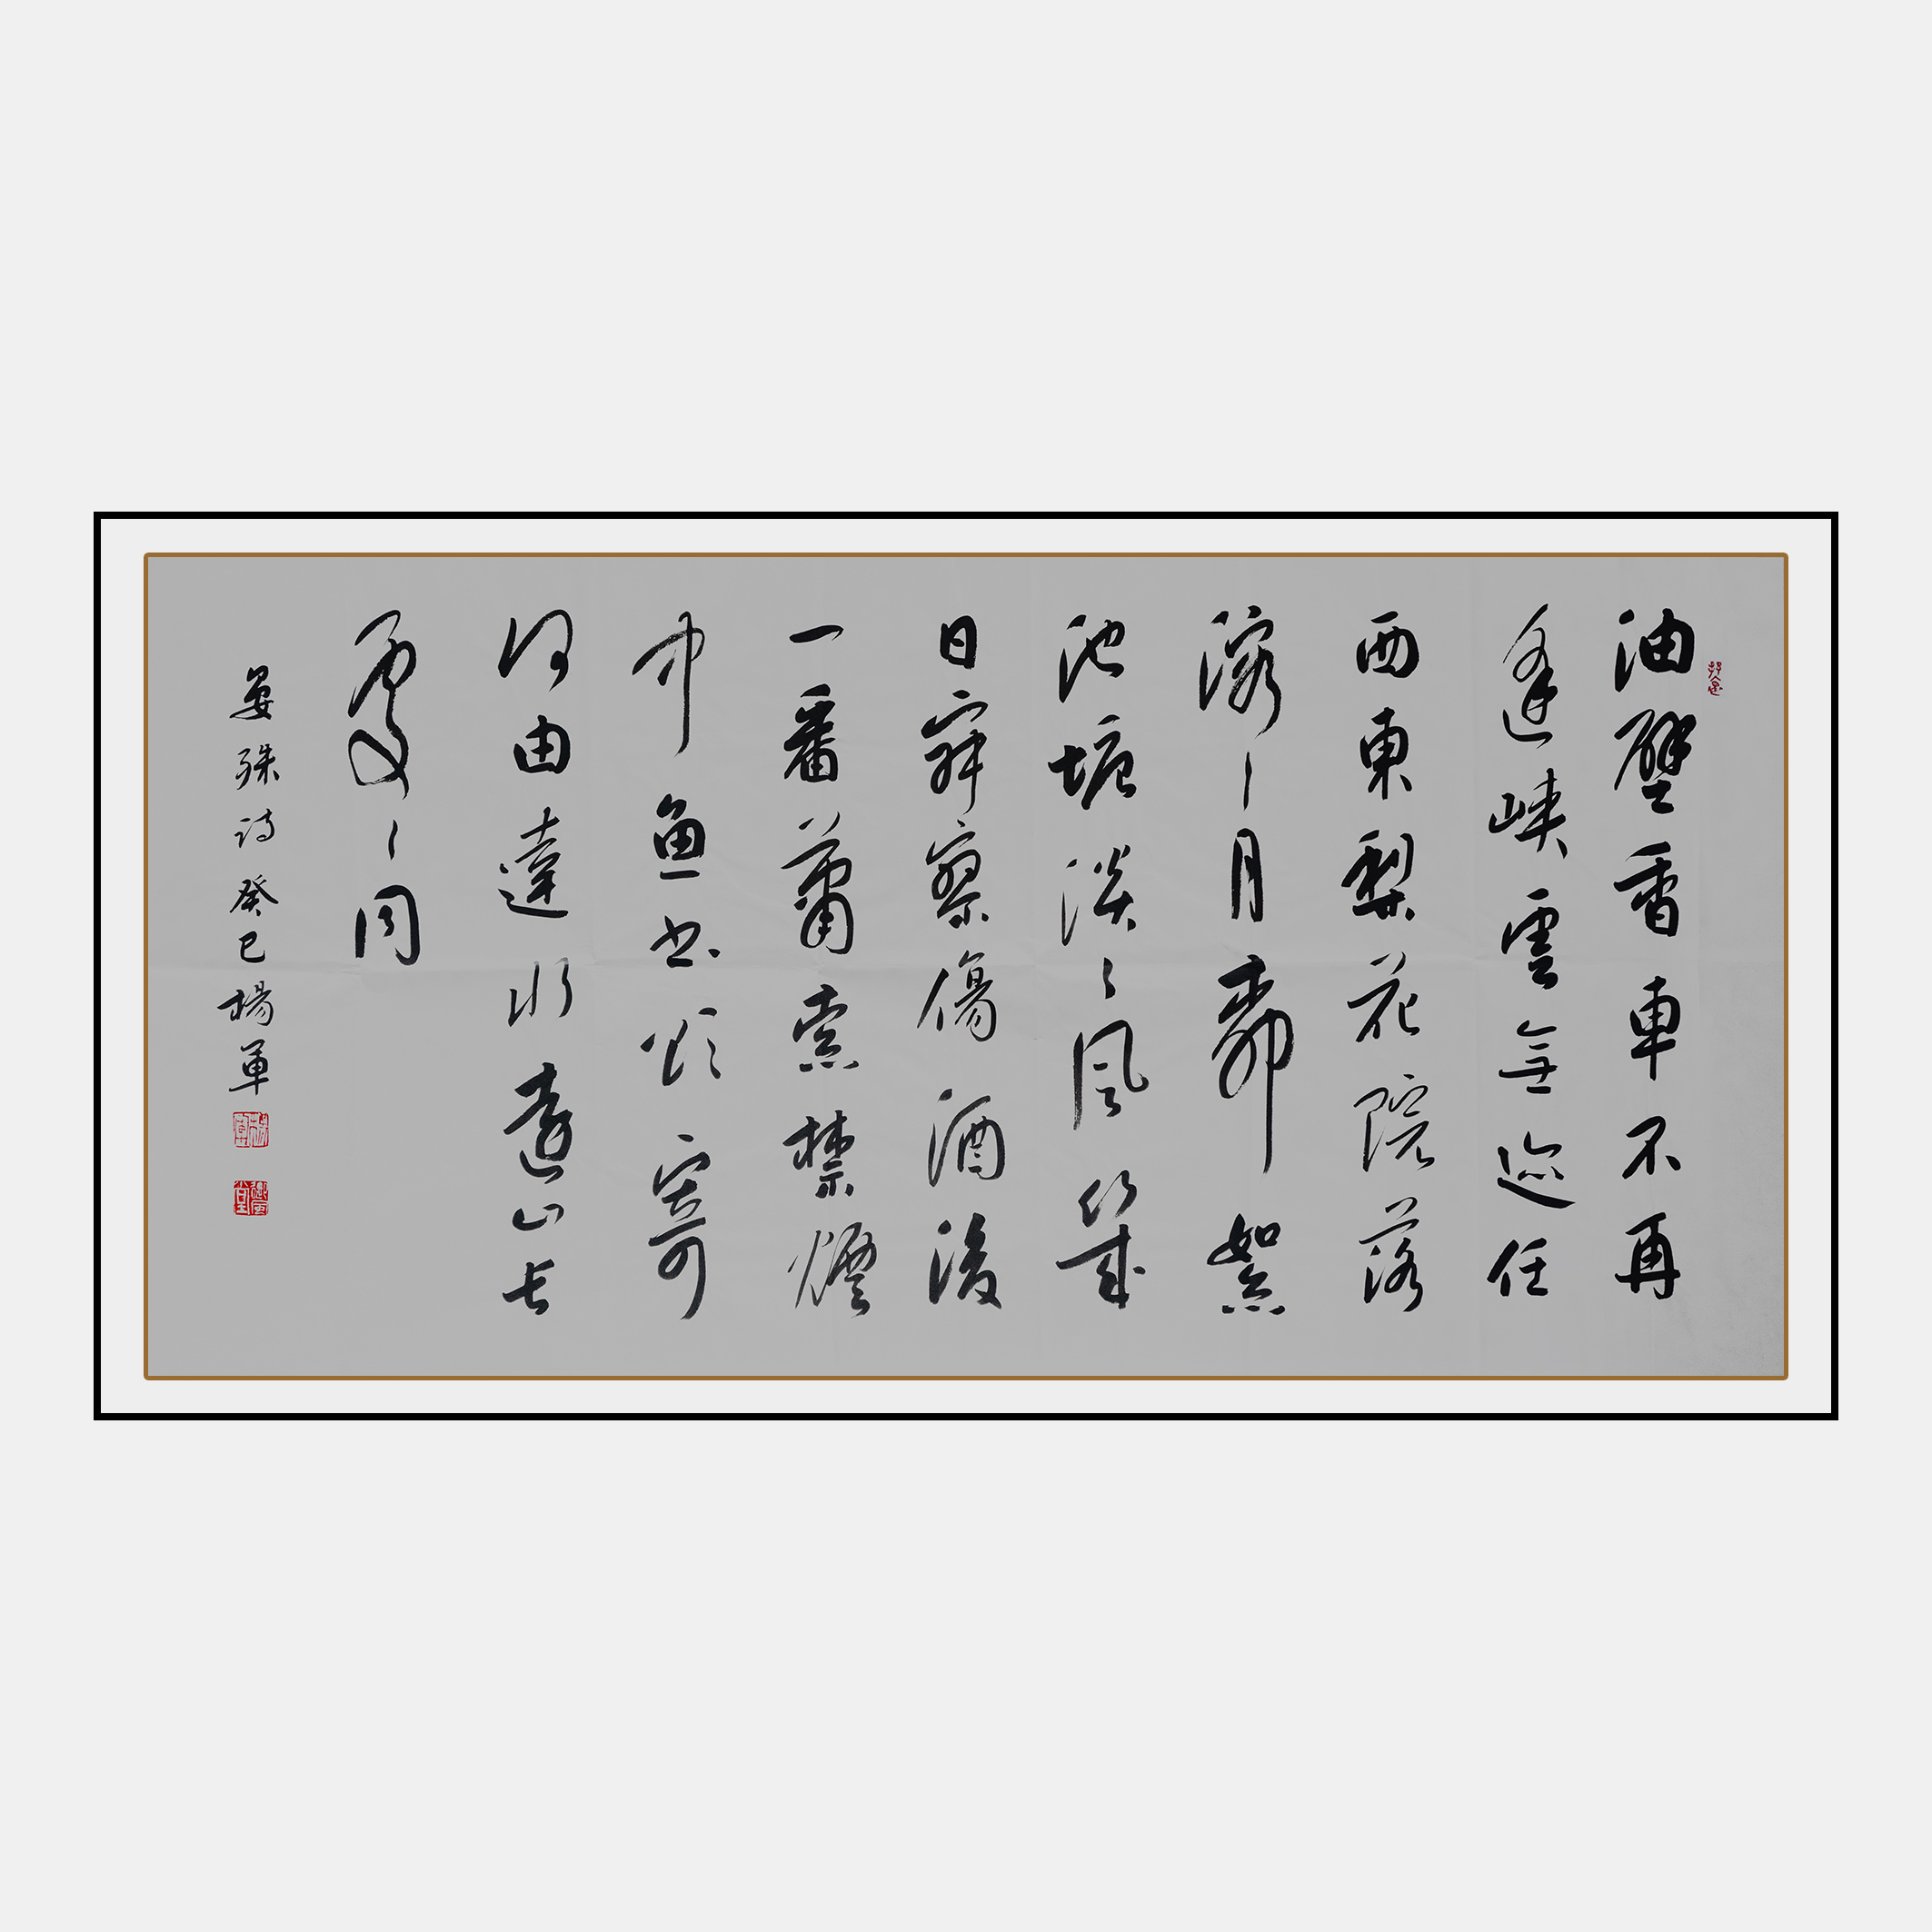 油壁香車不再
逢峽雲無迹任
西東梨花院落
溶〻月柳絮
池塘淡〻風幾
日寂寥傷酒後
一番蕭索禁煙
中魚書欲寄
何由達水遠山長
處〻同
晏殊詩癸巳楊軍
楊軍